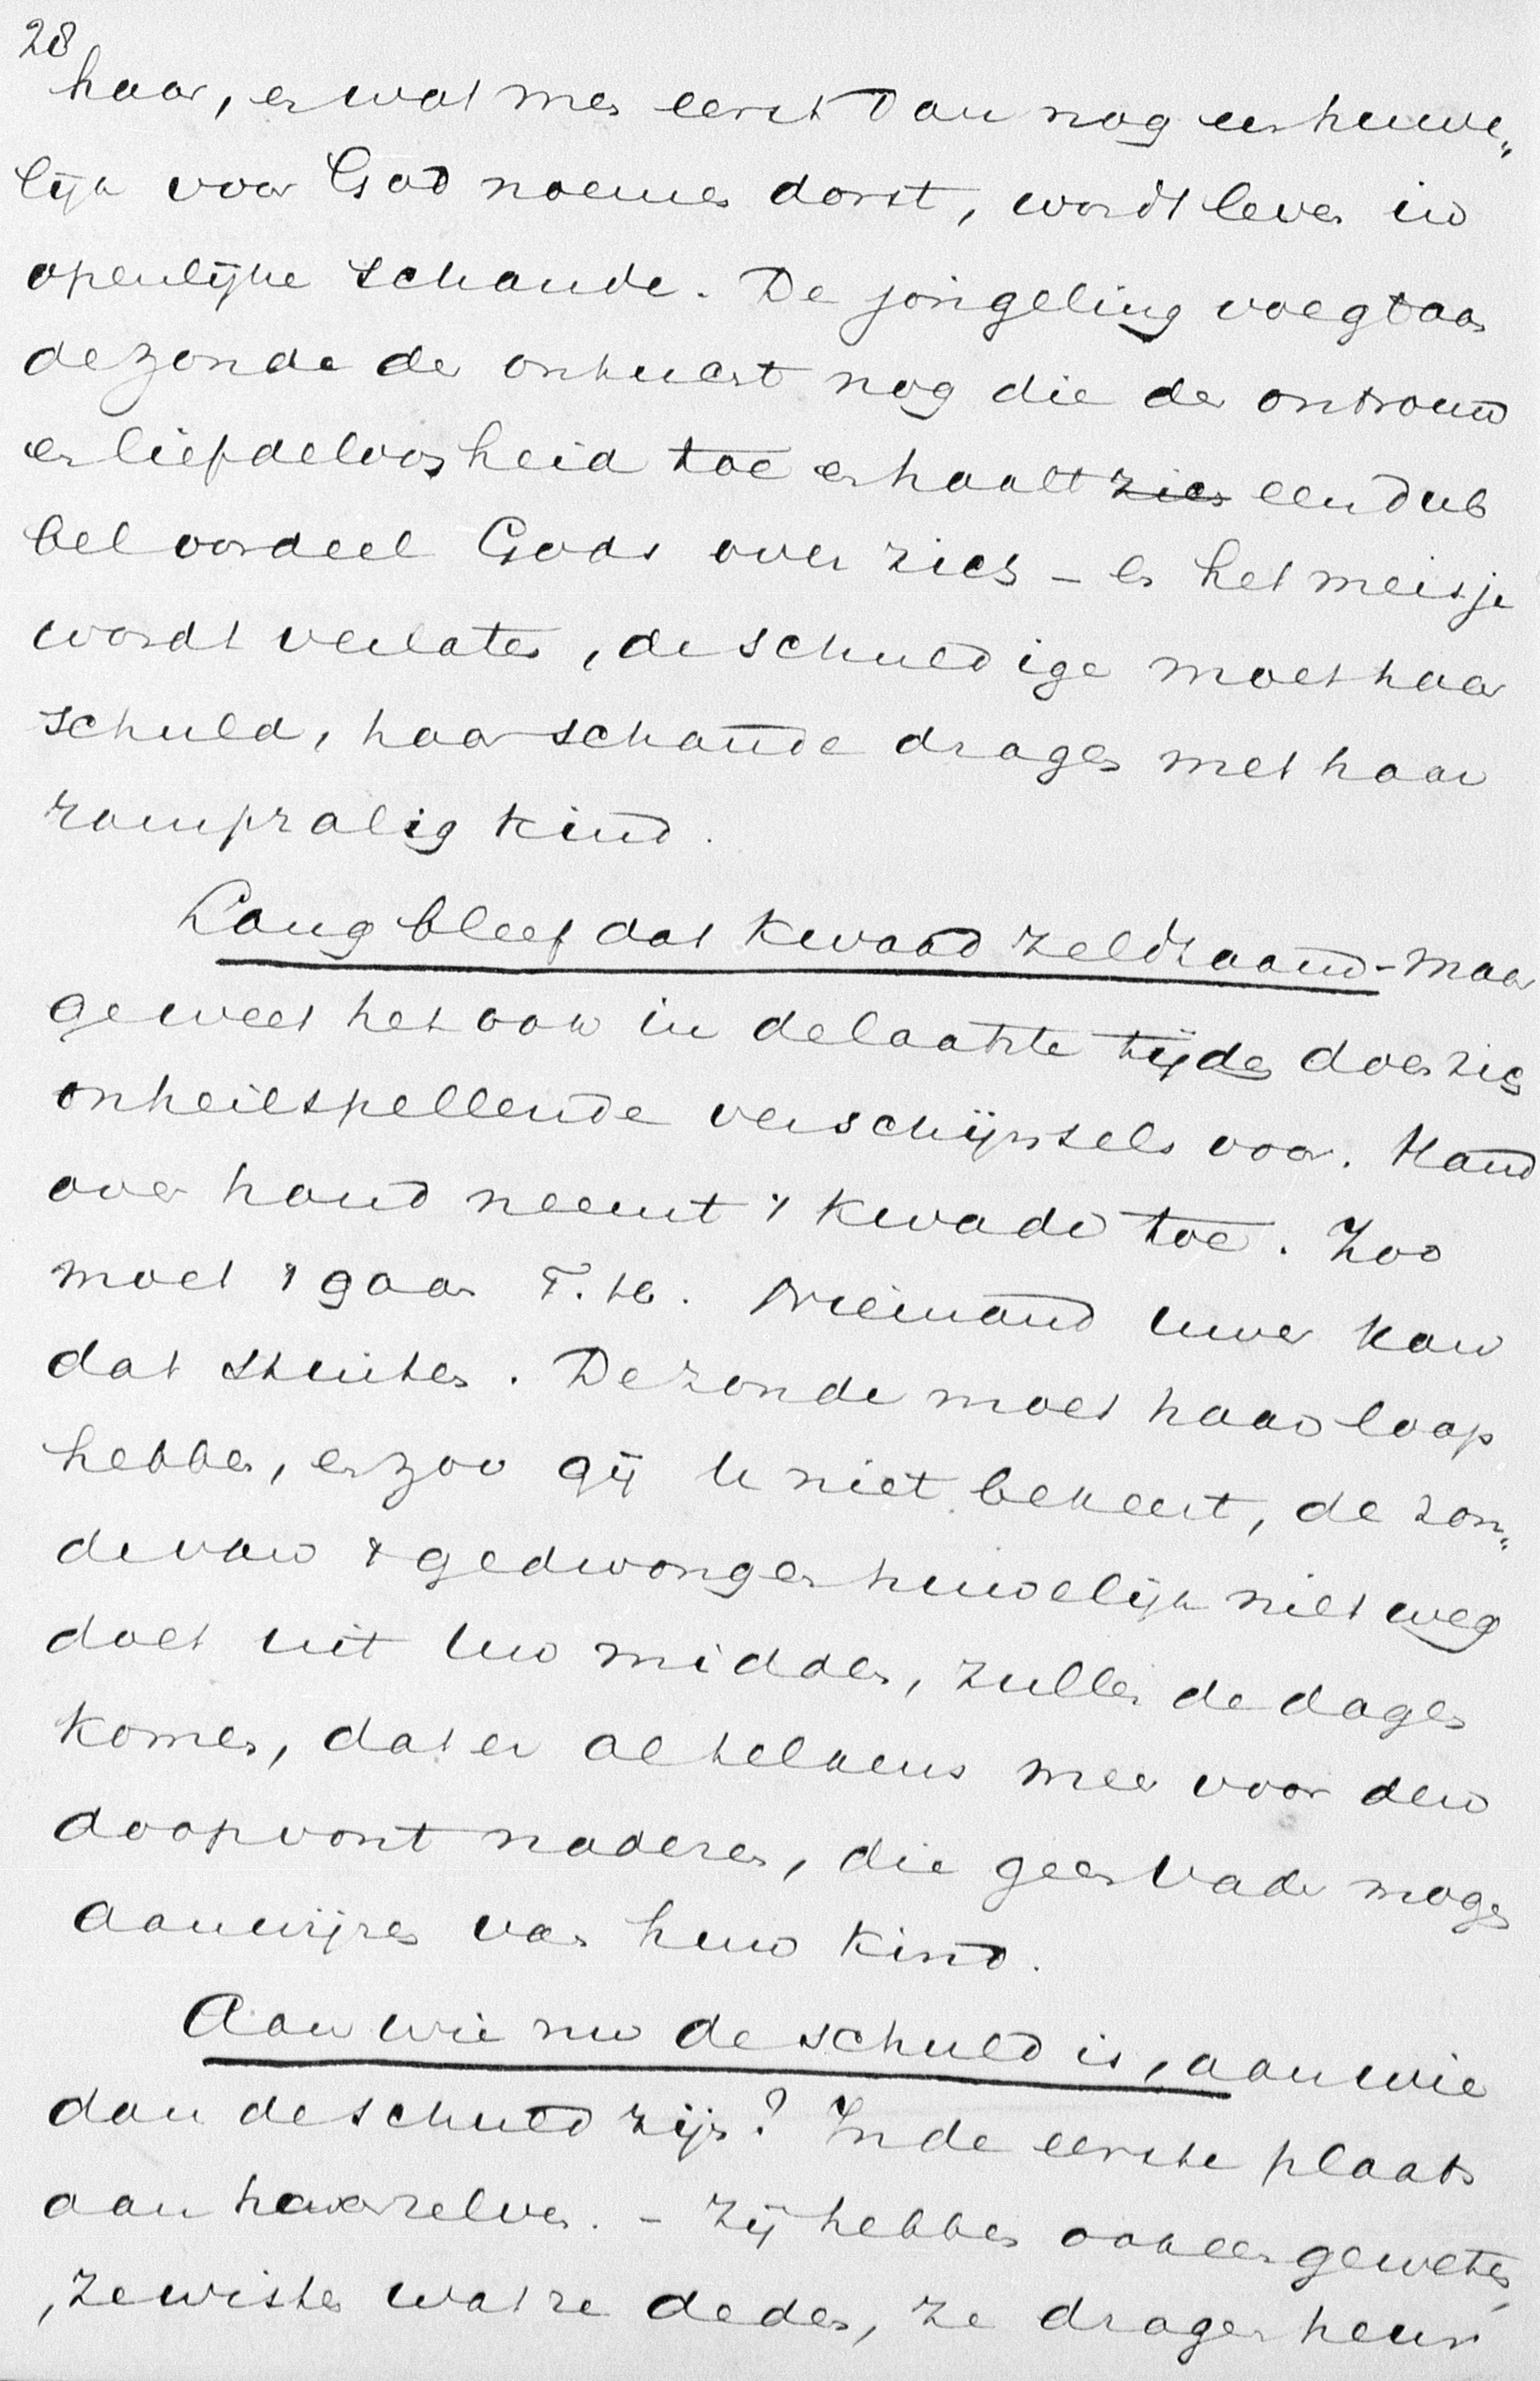 28
haar, en wat men eerst dan nog een huwe„
lijk voor God noemen dorst, wordt leven in
openlijke schande. De jongeling voegt aan
de zonde der ontucht nog die der ontrouw
en liefdeloosheid toe en haalt zich een dub
bel oordeel Gods over zich – en het meisje
wordt verlaten, de schuldige moet haar
schuld, haar schande dragen met haar
rampzalig kind.
Lang bleef dat kwaad zeldzaam – maar
ge weet het ook in de laatste tijden doen zich
onheilspellende verschijnsels voor. Hand
over hand neemt 't kwade toe. Zoo
moet 't gaan T. H. Niemand uwer kan
dat stuiten. De zonde moet haar loop
hebben, en zoo gij U niet bekeert, de zon„
de van 't gedwongen huwelijk niet weg
doet uit Uw midden, zullen de dagen
komen, dat er al telkens meer voor den
doopvont naderen, die geen Vader mogen
aanwijzen van hun kind.
Aan wie nu de schuld is, aan wie
dan de schuld zij? In de eerste plaats
aan haar zelve. – Zij hebben ook een geweten,
, ze wisten wat ze deden, ze dragen heur